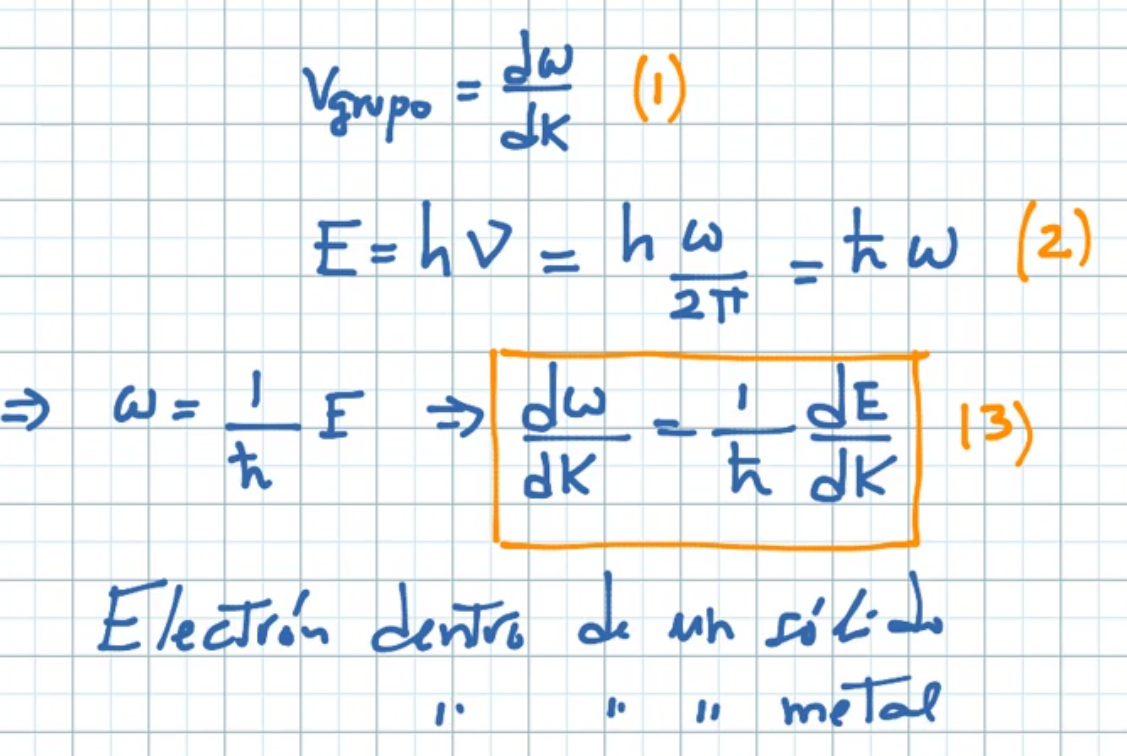 Vgrupo = dω/dK (1)
E = hν = h ω/2π = ħ ω (2)
⇒ ω = 1/ħ E ⇒ dω/dK = 1/ħ dE/dK (3)
Electrón dentro de un sólido
" " " metal